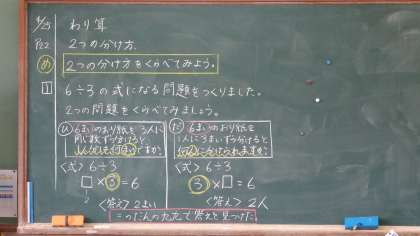 4/23 わり算
P22 2つの分け方.
め 2つの分け方をくらべてみよう。
1 6÷3 の 式になる 問題をつくりました。
2つの問題をくらべてみましょう。
6まいのおり紙を 3人に
同じ数ずつ分けると
1人分は何まいですか?
<式> 6÷3
□×3=6
<答え> 2まい
6まいのおり紙を
1人に3まいずつ分けると
何人に分けられますか?
<式> 6÷3
3×□=6
<答え> 2人
=のだんの九九で答えを見つけた。